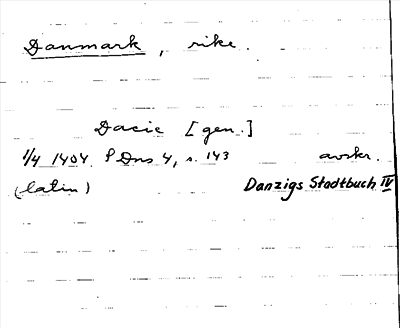 Danmark, rike.
Dacie [gen.]
1/4 1404 PDns 4, s. 143 avskr.
(latin) Danzigs Stadtbuch IV